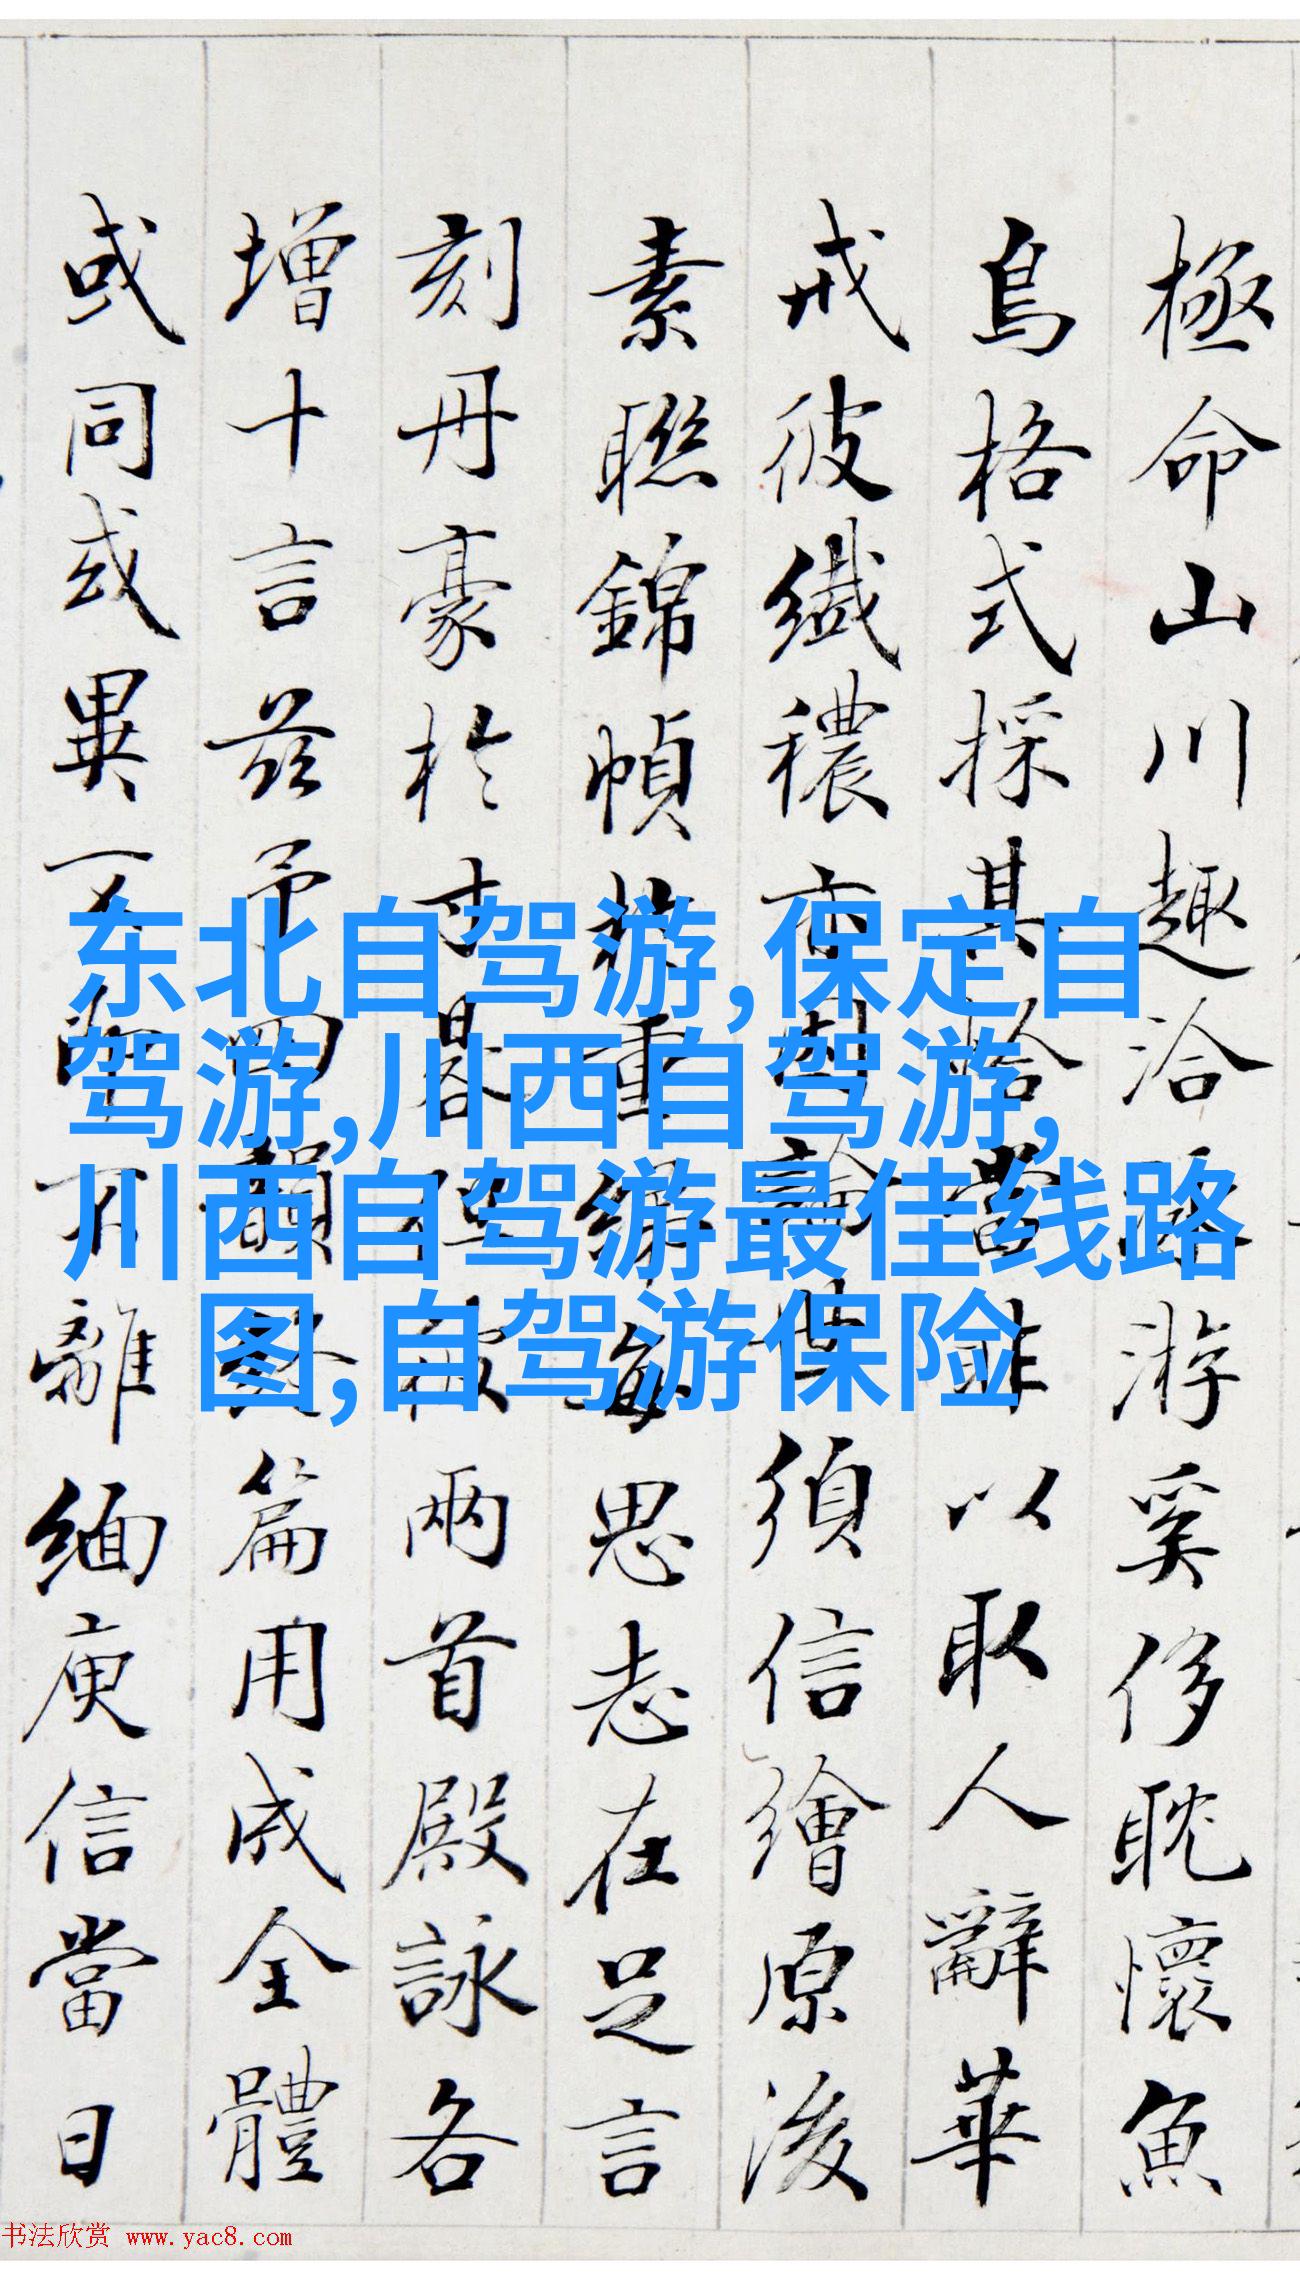 極命山川趣洽游奚侈耽懷魚
鳥格式採其當非以取人辭華
戒彼纖穠亦論須信繪原後
素聯錦幀重思志在足言
刻丹豪於寸晷兩首殿詠各
增十言茲予四韻終篇用成全體
或同或異離緬庾信當日
东北自驾游,保定自
驾游,川西自驾游,
川西自驾游最佳线路
图,自驾游保险
书法欣赏 www.yac8.com